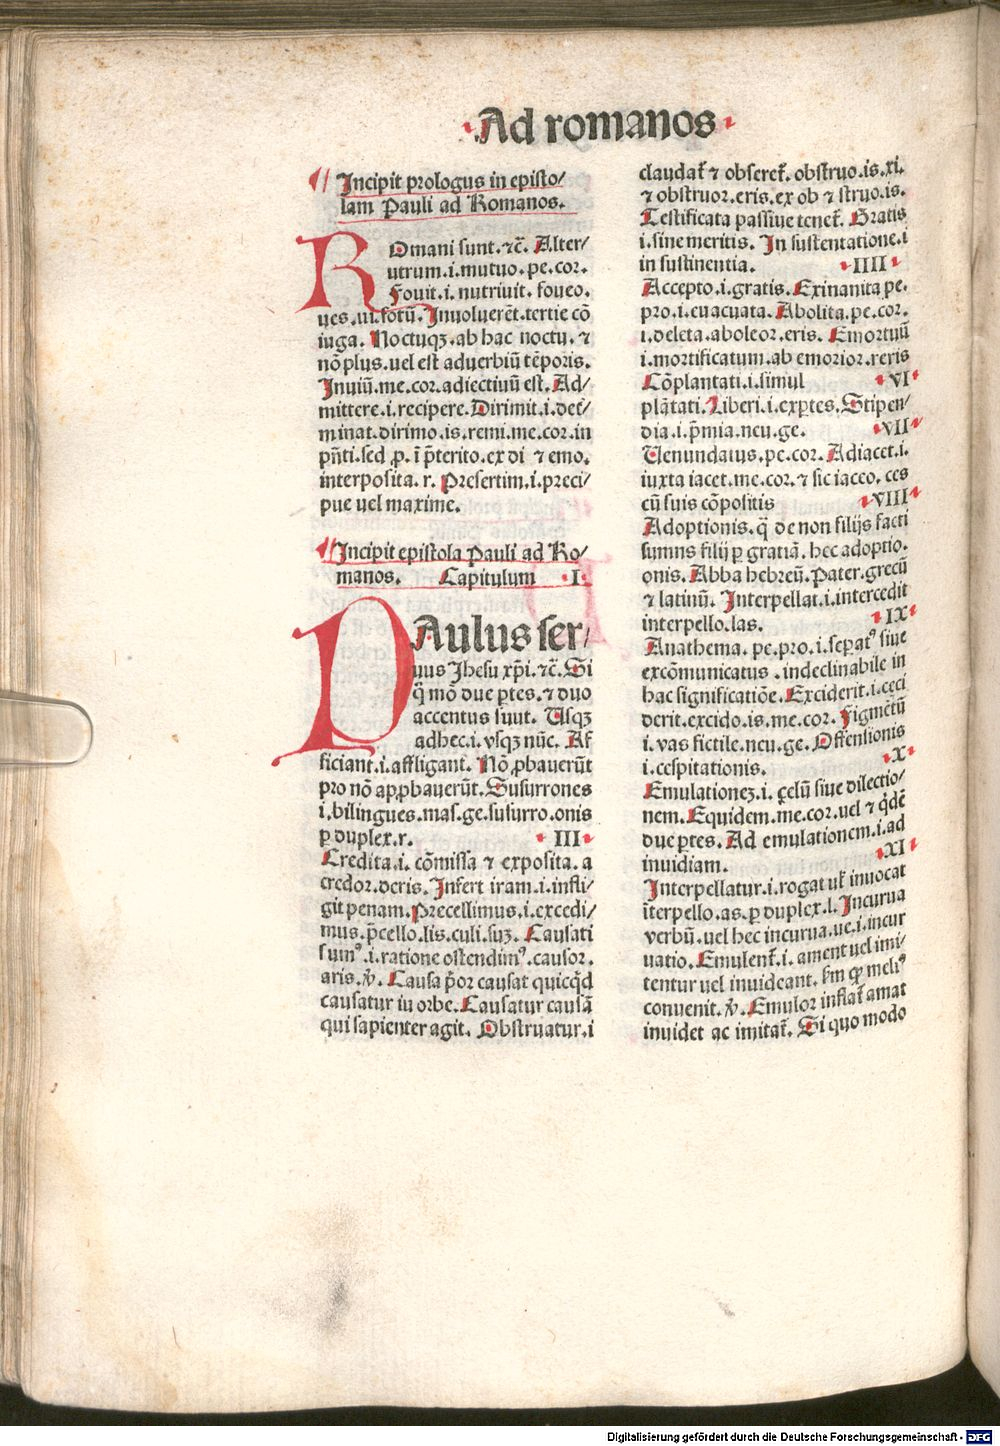 Ad romanos
Incipit prologus in episto/
lam Pauli ad Romanos.
ROmani sunt.⁊c̄. Alter/
utrum.i.mutuo.pe.cor.
Fouit.i.nutriuit. foueo.
ues.ui.fotū. Inuoluerēt.tertie cō
iuga. Noctuqꝫ.ab hac noctu.⁊
nōplus.uel est aduerbiū tēporis.
Inuiū.me.cor.adiectiuū est. Ad/
mittere.i.recipere. Dirimit.i.det̄/
minat.dirimo.is.remi.me.cor.in
pn̄ti.sed .ꝓ. ī p̄terito.ex di ⁊ emo.
interposita.r. Presertim.i.preci/
pue uel maxime.
Incipit epistola Pauli ad Ro/
manos. Capitulum .I.
PAulus ser/
uus Jhesu xp̄i.⁊c̄. Si
q̄ mō due ꝑtes.⁊ duo
accentus sunt. Usqꝫ
adhec.i.vsqꝫ nūc. Af
ficiant.i.affligant. Nō ꝓbauerūt
pro nō apꝓbauerūt. Susurrones
i.bilingues.mas.ge.susurro.onis
ꝑ duplex.r. .III.
Credita.i.cōmissa ⁊ exposita.a
credor.deris. Infert iram.i.infli/
git penam. Precellimus.i.excedi/
mus.p̄cello.lis.culi.suꝫ. Causati
sumꝰ.i.ratione ostendimꝰ.causor.
aris.ꝟ. Causa p̄or causat quicq̄d
causatur in orbe. Causatur causā
qui sapienter agit. Obstruatur.i
claudat᷑ ⁊ obseret᷑. obstruo.is.xi.
⁊ obstruor.eris.ex ob ⁊ struo.is.
Testificata passiue tenet᷑. Gratis
i.sine meritis. In sustentatione.i
in sustinentia. .IIII.
Accepto.i.gratis. Exinanita pe.
pro.i.euacuata. Abolita.pe.cor.
i.deleta.aboleor.eris. Emortuū
i.mortificatum.ab emorior.reris
Cōplantati.i.simul .VI.
plātati. Liberi.i.exꝑtes. Stipen/
dia.i.p̄mia.neu.ge. .VII.
Uenundatus.pe.cor. Adiacet.i.
iuxta iacet.me.cor.⁊ sic iaceo.ces
cū suis cōpositis .VIII.
Adoptionis.q̄ de non filijs facti
sumus filij ꝑ gratiā. hec adoptio.
onis. Abba hebreū. Pater.grecū
⁊ latinū. Interpellat.i.intercedit
interpello.las. .IX.
Anathema.pe.pro.i.seꝑatꝰ siue
excōmunicatus.indeclinabile in
hac significatiōe. Exciderit.i.ceci
derit.excido.is.me.cor. Figmētū
i.vas fictile.neu.ge. Offensionis
i.cespitationis. .X.
Emulationeꝫ.i.ꝫelū siue dilectio/
nem. Equidem.me.cor.uel ⁊ q̄dē
due ꝑtes. Ad emulationem.i.ad
inuidiam. .XI.
Interpellatur.i.rogat ul̄ inuocat
īterpello.as.ꝑ duplex.l. Incurua
verbū.uel hec incurua.ue.i.incur
uatio. Emulent᷑.i.ament uel imi/
tentur uel inuideant. km̄ ꝙ meliꝰ
conuenit.ꝟ. Emulor inflat᷑ amat
inuidet ac imitat᷑. Si quo modo
Digitalisierung gefördert durch die Deutsche Forschungsgemeinschaft - DFG